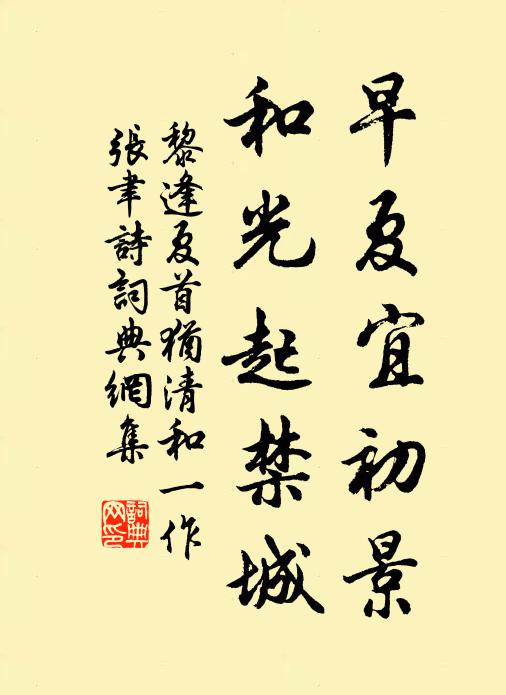 早夏宜初景
和光起禁城
黎逢夏首猶清和一作
張聿詩詞典網集
詞典網印